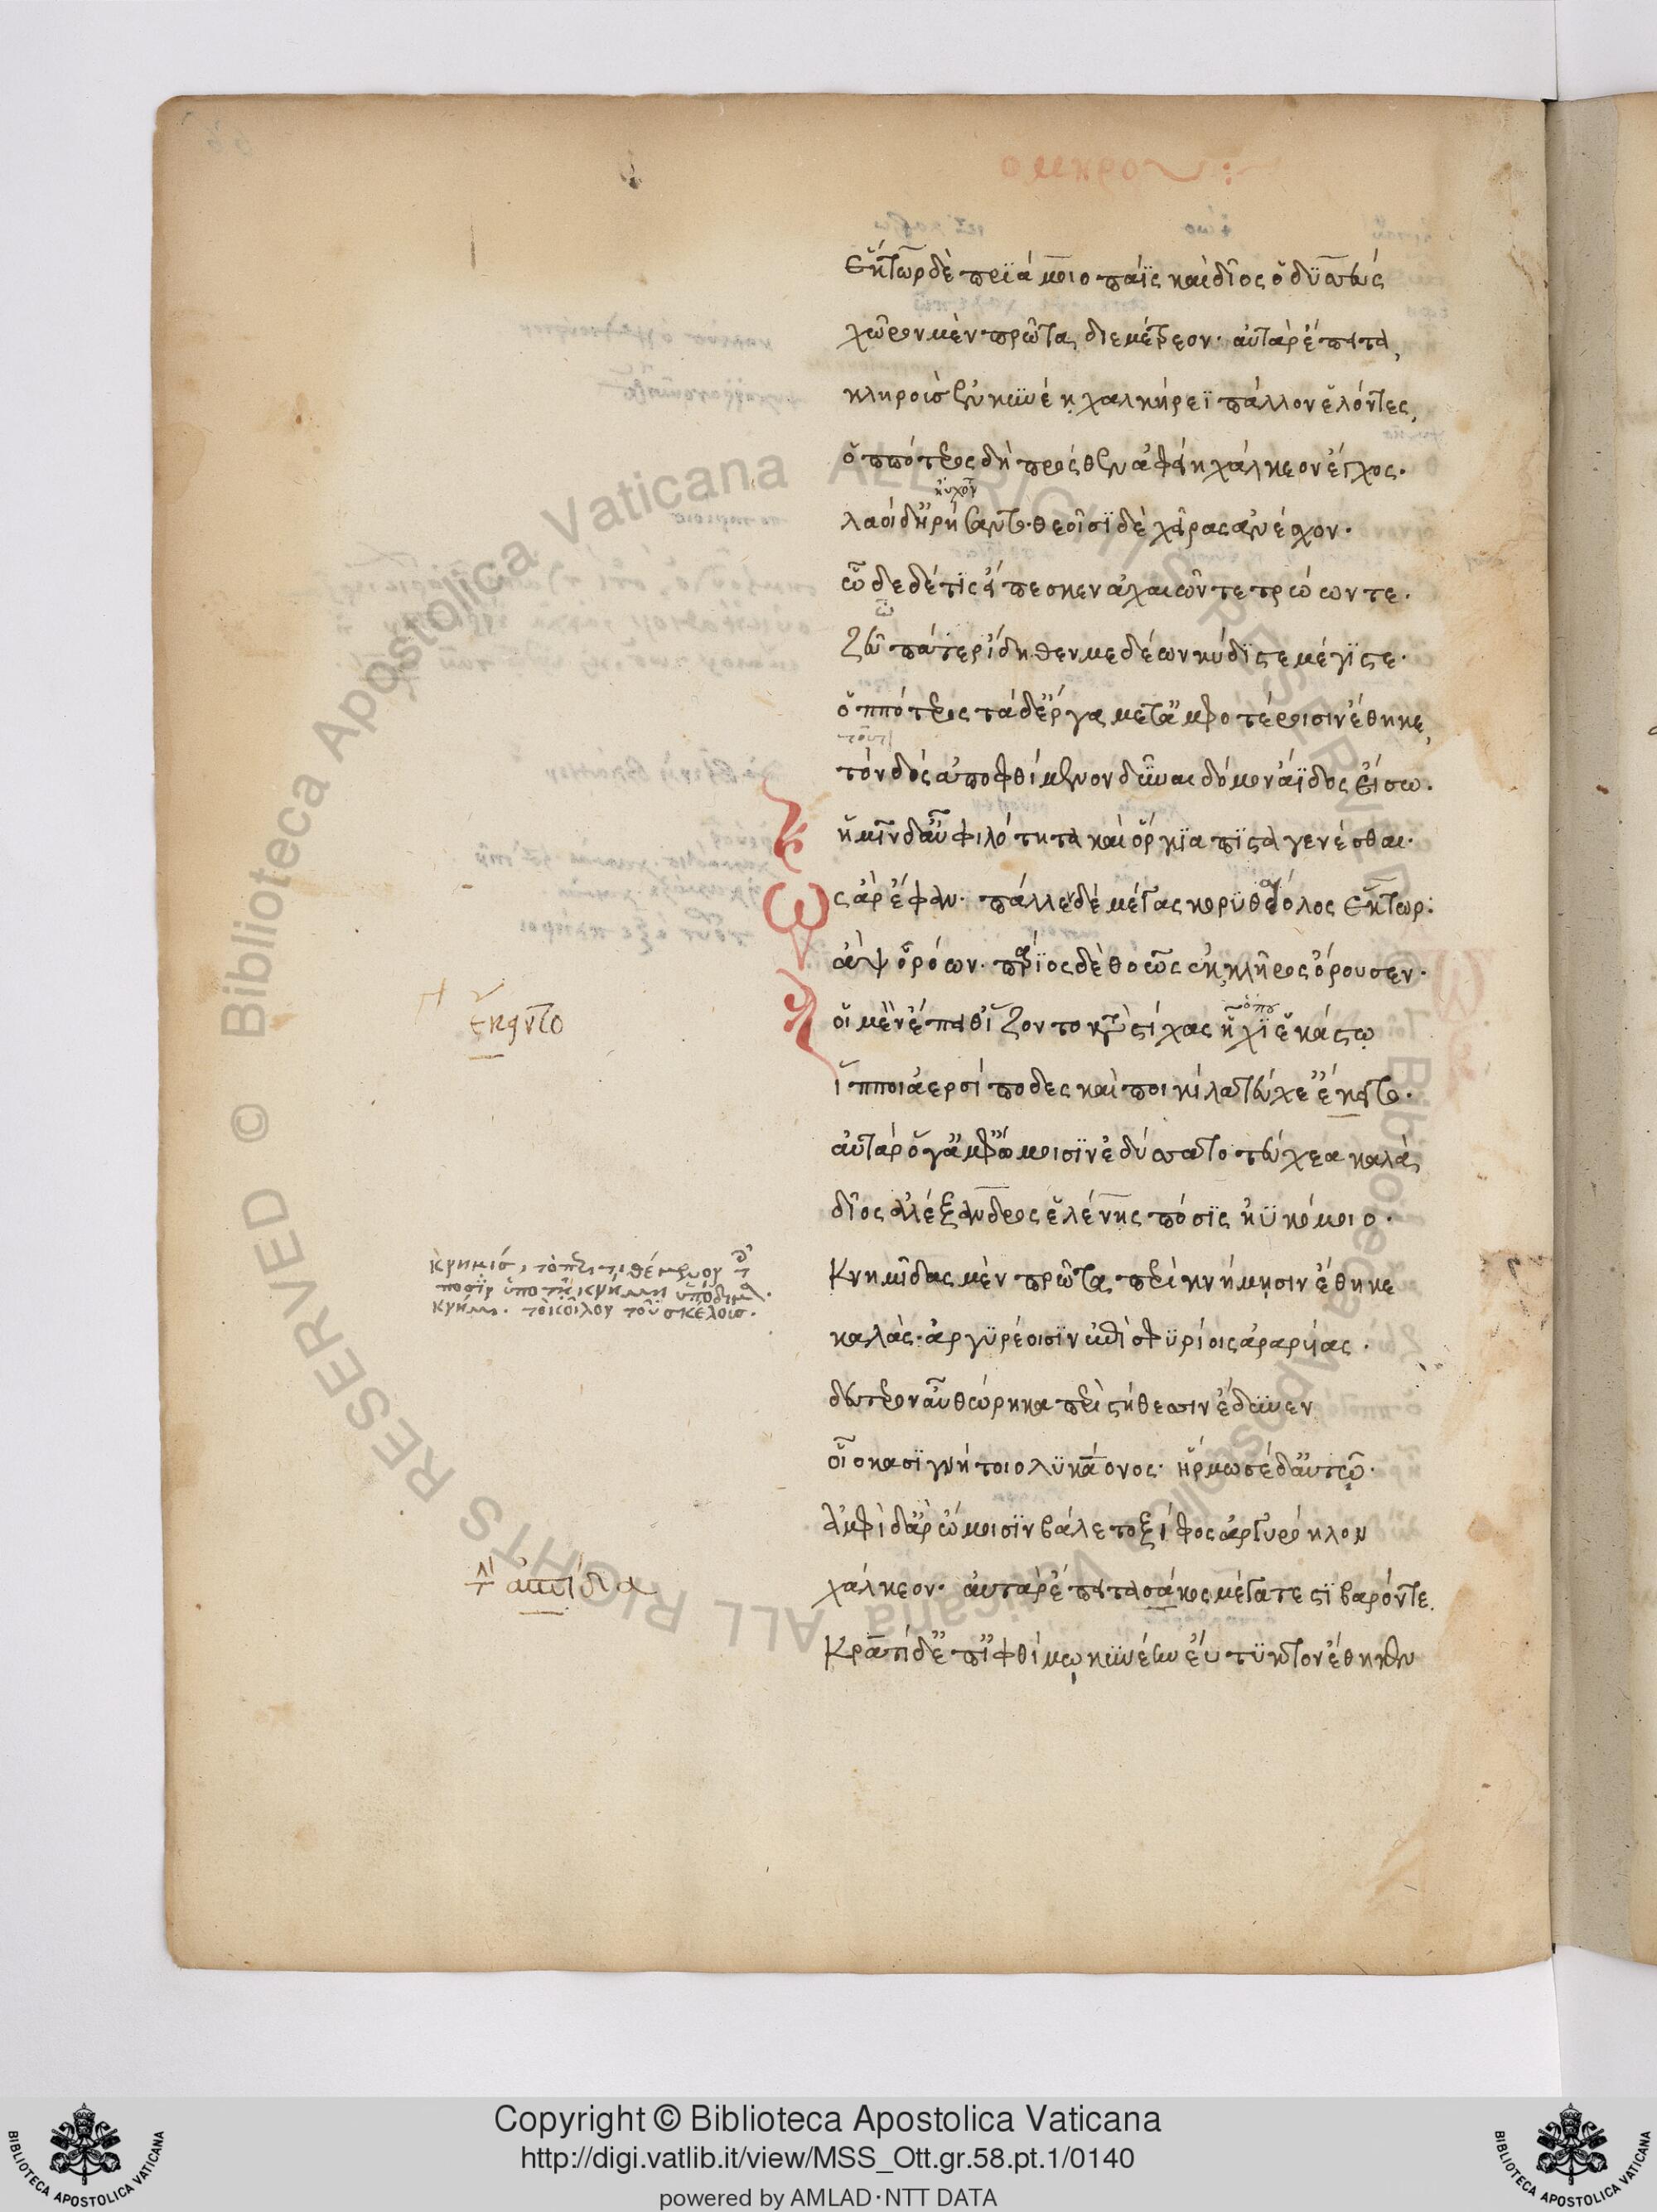 ομηρου :~
Ἕκτωρ δὲ πριάμοιο πάϊς καὶ δῖος ὀδυσσεύς
χῶρον μὲν πρῶτα διεμέτρεον· αὐτὰρ ἔπειτα,
κλήροις ἐν κυνέῃ χαλκήρεϊ πάλλον ἑλόντες,
ὁππότερος δὴ πρόσθεν ἀφείη χάλκεον ἔγχος.
ηὔχοντ
λαοὶ δ' ἠρήσαντο· θεοῖσι δὲ χεῖρας ἀνέσχον.
ὧδε δέ τις εἴπεσκεν ἀχαιῶν τε τρώων τε.
ὦ
Ζεῦ πάτερ ἴδηθεν μεδέων κύδιστε μέγιστε.
ὁππότερος τάδε ἔργα μετ' ἀμφοτέροισιν ἔθηκε,
τοῦτ
τὸν δὸς ἀποφθίμενον δῦναι δόμον ἄϊδος εἴσω.
ἡμῖν δ' αὖ φιλότητα καὶ ὅρκια πιστὰ γενέσθαι.
Ὣς ἄρ' ἔφαν· πάλλε δὲ μέγας κορυθαίολος ἕκτωρ:
ἂψ ὁρόων· πάριος δὲ θοῶς ἐκ κλῆρος ὄρουσεν.
ὅπου
οἱ μὲν ἔπειθ' ἵζοντο κατὰ στίχας ἧχι ἑκάστῳ
ἔκειντο
ἵπποι ἀερσίποδες καὶ ποικίλα τεύχε' ἔκειτο.
αὐτὰρ ὅγ' ἀμφ' ὤμοισιν ἐδύσατο τεύχεα καλά,
δῖος ἀλέξανδρος ἑλένης πόσις ἠϋκόμοιο.
κνημίσ, τὸ περιτιθέμενον τ
ποσὶν ὑπὸ τῇ κνήμῃ ὑπόδημα.
κνήμη. τὸ κοῖλον τοῦ σκέλους.
Κνημῖδας μὲν πρῶτα περὶ κνήμῃσιν ἔθηκε
καλὰς· ἀργυρέοισιν ἐπισφυρίοις ἀραρυίας.
δεύτερον αὖ θώρηκα περὶ στήθεσσιν ἔδυνεν
οἷο κασιγνήτοιο λυκάονος· ἥρμοσε δ' αὐτῷ.
Ἀμφὶ δ' ἄρ' ὤμοισιν βάλετο ξίφος ἀργυρόηλον
τὴν ἀσπίδα
χάλκεον· αὐτὰρ ἔπειτα σάκος μέγα τε στιβαρόν τε.
Κρατὶ δ' ἐπ' ἰφθίμῳ κυνέην εὔτυκτον ἔθηκεν
Copyright © Biblioteca Apostolica Vaticana
http://digi.vatlib.it/view/MSS_Ott.gr.58.pt.1/0140
powered by AMLAD·NTT DATA
BIBLIOTECA APOSTOLICA VATICANA
BIBLIOTECA APOSTOLICA VATICANA
© Biblioteca Apostolica Vaticana ALL RIGHTS RESERVED © Biblioteca Apostolica Vaticana ALL RIGHTS RESERVED